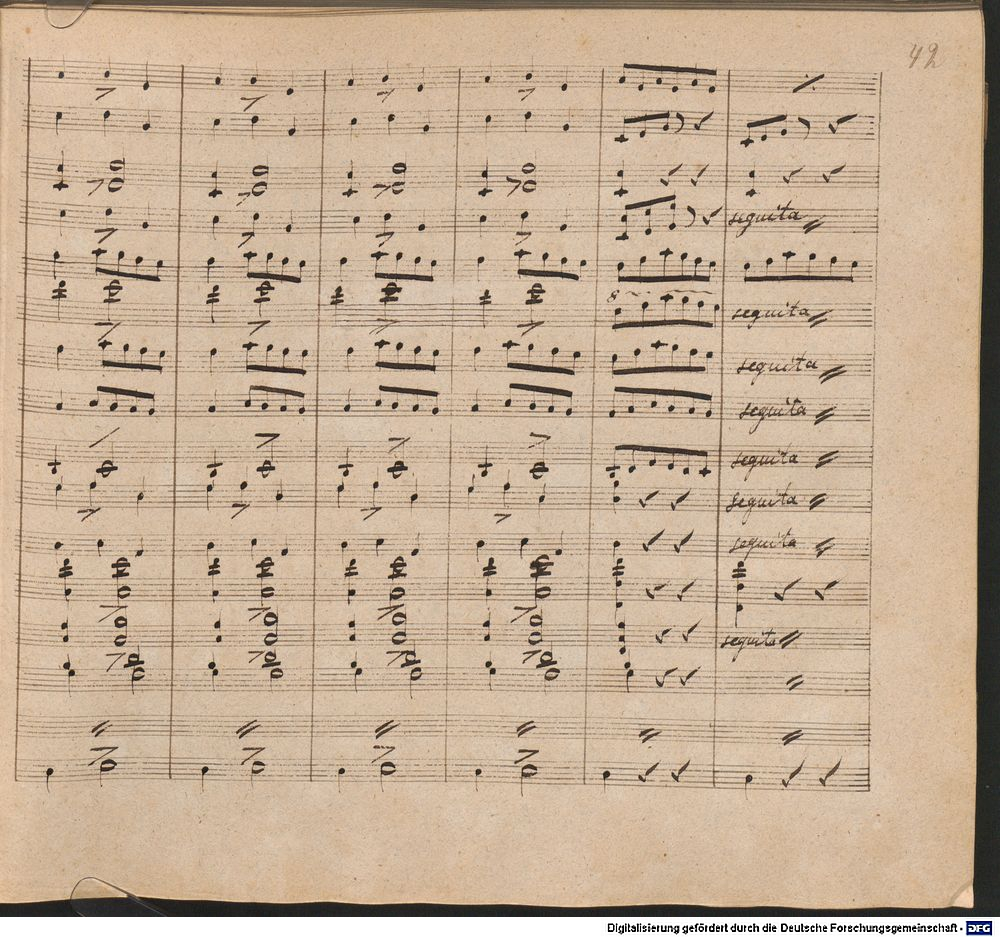 42
seguita
8
seguita
seguita
seguita
seguita
seguita
seguita
seguita
Digitalisierung gefördert durch die Deutsche Forschungsgemeinschaft - DFG